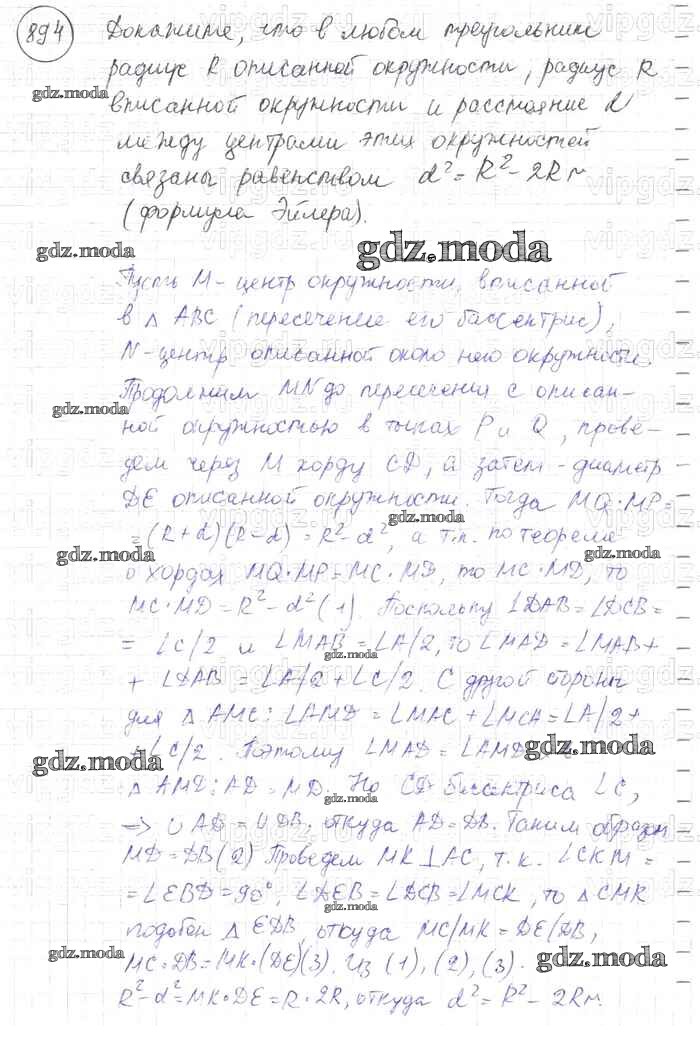 894
Докажите, что в любом треугольник
радиус R описанной окружности, радиус R
gdz.moda
вписанной окружности и расстояние d
между центрами этих окружностей
связаны равенством d² = R² - 2Rr
(формула Эйлера).
gdz.moda
gdz.moda
Пусть M - центр окружности, вписанной
в △ ABC (пересечение его биссектрис),
N - центр описанной около него окружности.
Продолжим MN до пересечения с описан-
gdz.moda
ной окружностью в точках P и Q, прове-
дем через M хорду CD, а затем - диаметр
DE описанной окружности. Тогда MQ·MP=
gdz.moda
= (R+d)(R-d) = R²-d², а т.к. по теореме
gdz.moda
о хордах MQ·MP = MC·MD, то MC·MD, то
MC·MD = R² - d² (1). Поскольку ∠DAB = ∠DCB =
= ∠C/2 и ∠MAB = ∠A/2, то ∠MAD = ∠MAB+
gdz.moda
+ ∠DAB = ∠A/2 + ∠C/2. С другой стороны
для △ AMC: ∠AMD = ∠MAC + ∠MCA = ∠A/2+
+ ∠C/2. Поэтому ∠MAD = ∠AMD
gdz.moda
gdz.moda
△ AMD: AD = MD. Но CD биссектриса ∠C,
gdz.moda
=> ∪AD = ∪DB, откуда AD=DB. Таким образом
MD=DB (2) Проведем MK⊥AC, т.к. ∠CKM =
= ∠EBD = 90°, ∠DEB = ∠DCB = ∠MCK, то △CMK
gdz.moda
подобен △ EDB, откуда MC/MK = DE/DB,
gdz.moda
MC·DB = MK·(DE)(3). Из (1), (2), (3).
gdz.moda
R²-d² = MK·DE = R·2R, откуда d² = R² - 2Rr.
gdz.moda